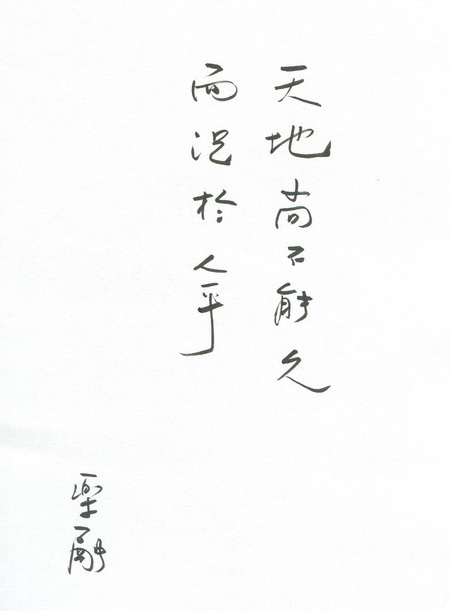 天地尚不能久
而況於人乎
樂融